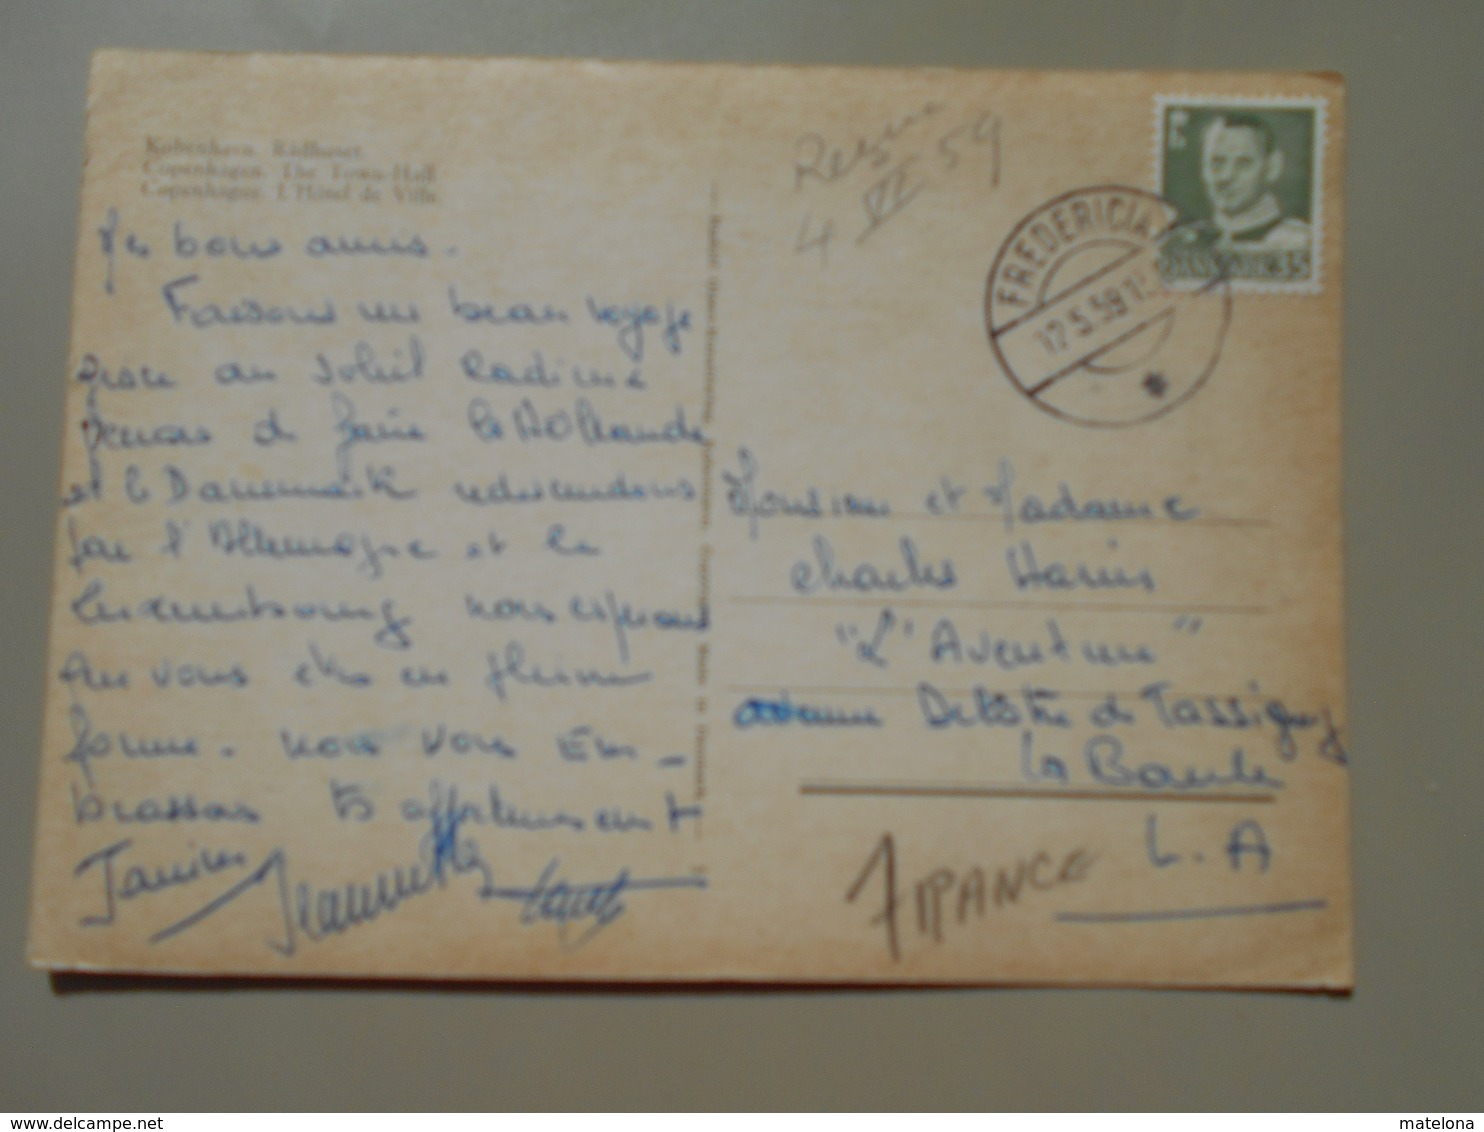 København. Rådhuset.
Copenhagen. The Town-Hall
Copenhague. L'Hôtel de Ville.
Mes bons amis.
Faisons un beau voyage
grâce au soleil
venons de faire la Hollande
et le Danemark redescendons
par l'Allemagne et le
Luxembourg nous espérons
que vous êtes en pleine
forme. nous vous em-
brassons affectueusement
Jeannette
4 VI 59
FREDERICIA
12.5.59
DANMARK 35
Monsieur et Madame
Charles
"L'Aventure"
avenue De Lattre de Tassigny
La Baule
L.A
FRANCE
www.delcampe.net
matelona